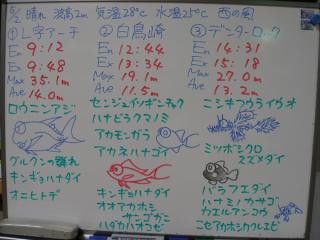 5/2 晴れ 波高2m 気温28℃ 水温25℃ 西の風
① L字アーチ
En 9:12
Ex 9:48
Max 35.1m
Ave 14.0m
ロウニンアジ
グルクンの群れ
キンギョハナダイ
オニヒトデ
② 白鳥崎
En 12:44
Ex 13:30
Max 19.1m
Ave 11.5m
センジュイソギンチャク
ハナビラクマノミ
アカモンガラ
アカネハナゴイ
キンギョハナダイ
オオアカホシ
サンゴガニ
ハダカハオコゼ
③ デンターロック
En 14:31
Ex 15:18
Max 27.0m
Ave 13.2m
ニシキフウライウオ
ミツボシクロ
スズメダイ
バラフエダイ
ハナミノカサゴ
カエルアンコウ
ニセアカホシカクレエビ